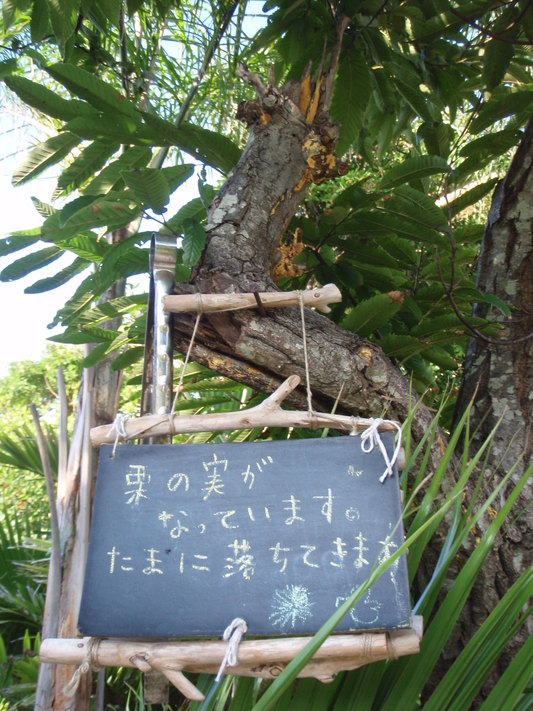 栗の実が
なっています。
たまに落ちてきます